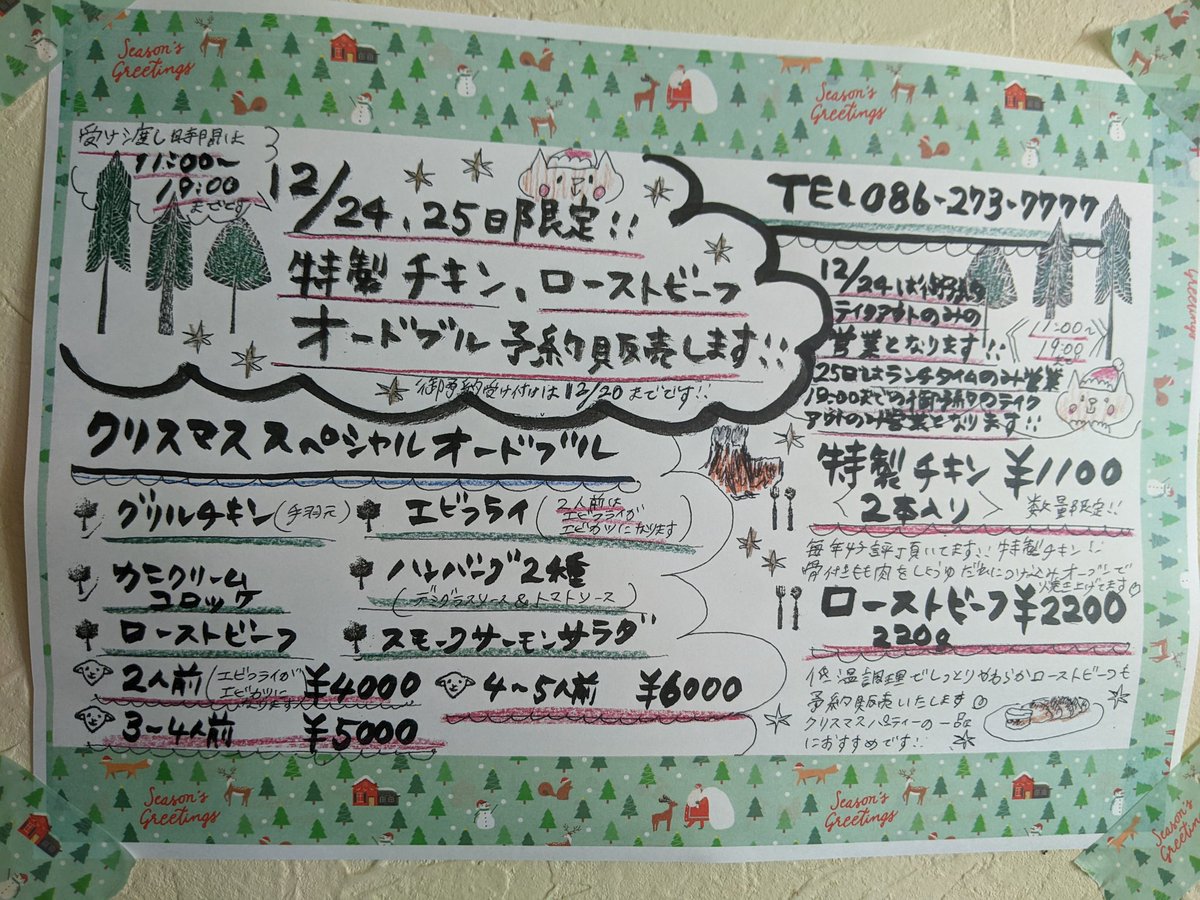 Season's
Greetings
Season's
Greetings
受け渡し時間は
11:00〜
19:00
までです
12/24、25日限定!!
特製チキン、ローストビーフ
オードブル予約販売します!!
御予約受け付けは12/20までです!!
TEL086-273-7777
12/24は御予約
テイクアウトのみの
営業となります!!
11:00〜
19:00
25日はランチタイムのみ営業
19:00までの御予約のテイク
アウトのみ営業となります!!
クリスマススペシャルオードブル
グリルチキン(手羽元)
エビフライ(2人前は
エビフライが
エビカツになります)
カニクリーム
コロッケ
ハンバーグ2種
(デミグラスソース&トマトソース)
ローストビーフ
スモークサーモンサラダ
2人前(エビフライが
エビカツに
なります)
¥4000
4〜5人前 ¥6000
3〜4人前 ¥5000
特製チキン ¥1100
2本入り 数量限定!!
毎年好評頂いてます!!特製チキン!!
骨付きもも肉をしょうゆだれにつけ込みオーブンで
焼き上げてます。
ローストビーフ¥2200
220g
低温調理でしっとりやわらかローストビーフも
予約販売いたします。
クリスマスパーティーの一品
におすすめです!!
Season's
Greetings
Season's
Greetings